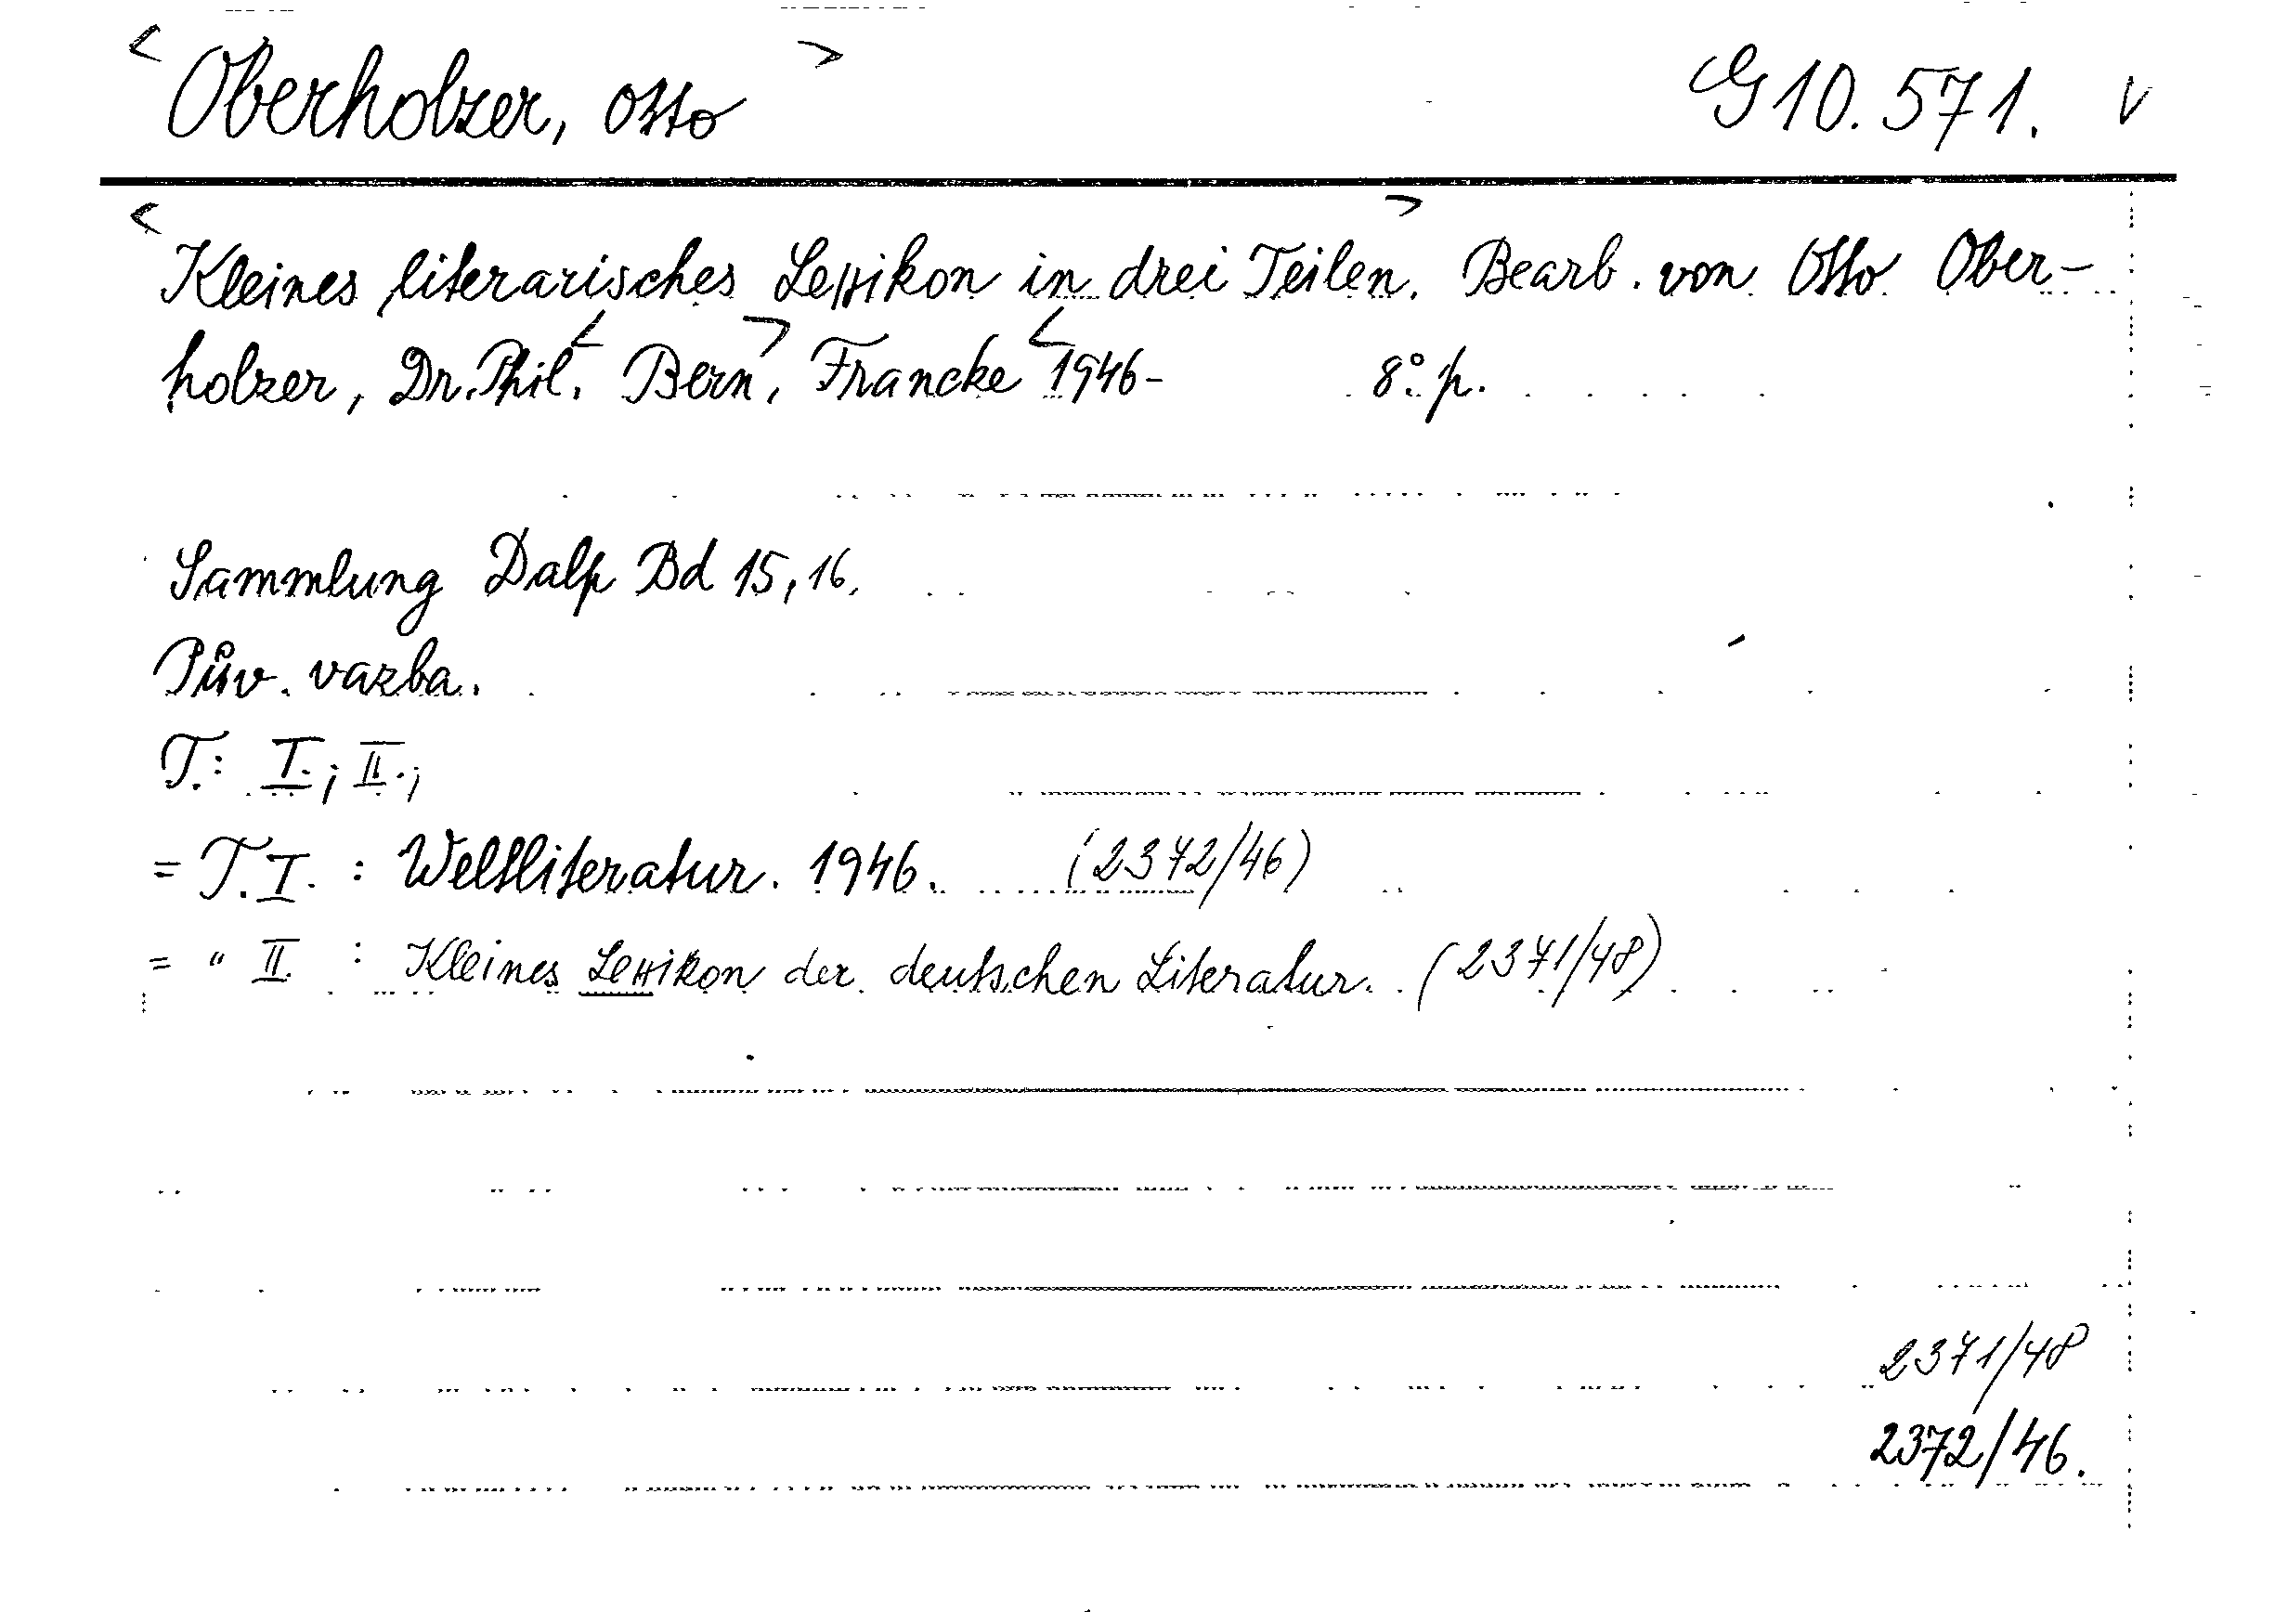 < Oberholzer, Otto > G 10.571. v
< Kleines literarisches Lexikon in drei Teilen. > Bearb. von Otto Ober-
holzer, Dr. Phil. < Bern >, Francke < 1946- 8° p.
Sammlung Dalp Bd 15, 16.
Pův. vazba.
T.: I.; II.;
= T. I. : Weltliteratur. 1946. (2372/46)
= " II. : Kleines Lexikon der deutschen Literatur. (2371/48)
2371/48
2372/46.